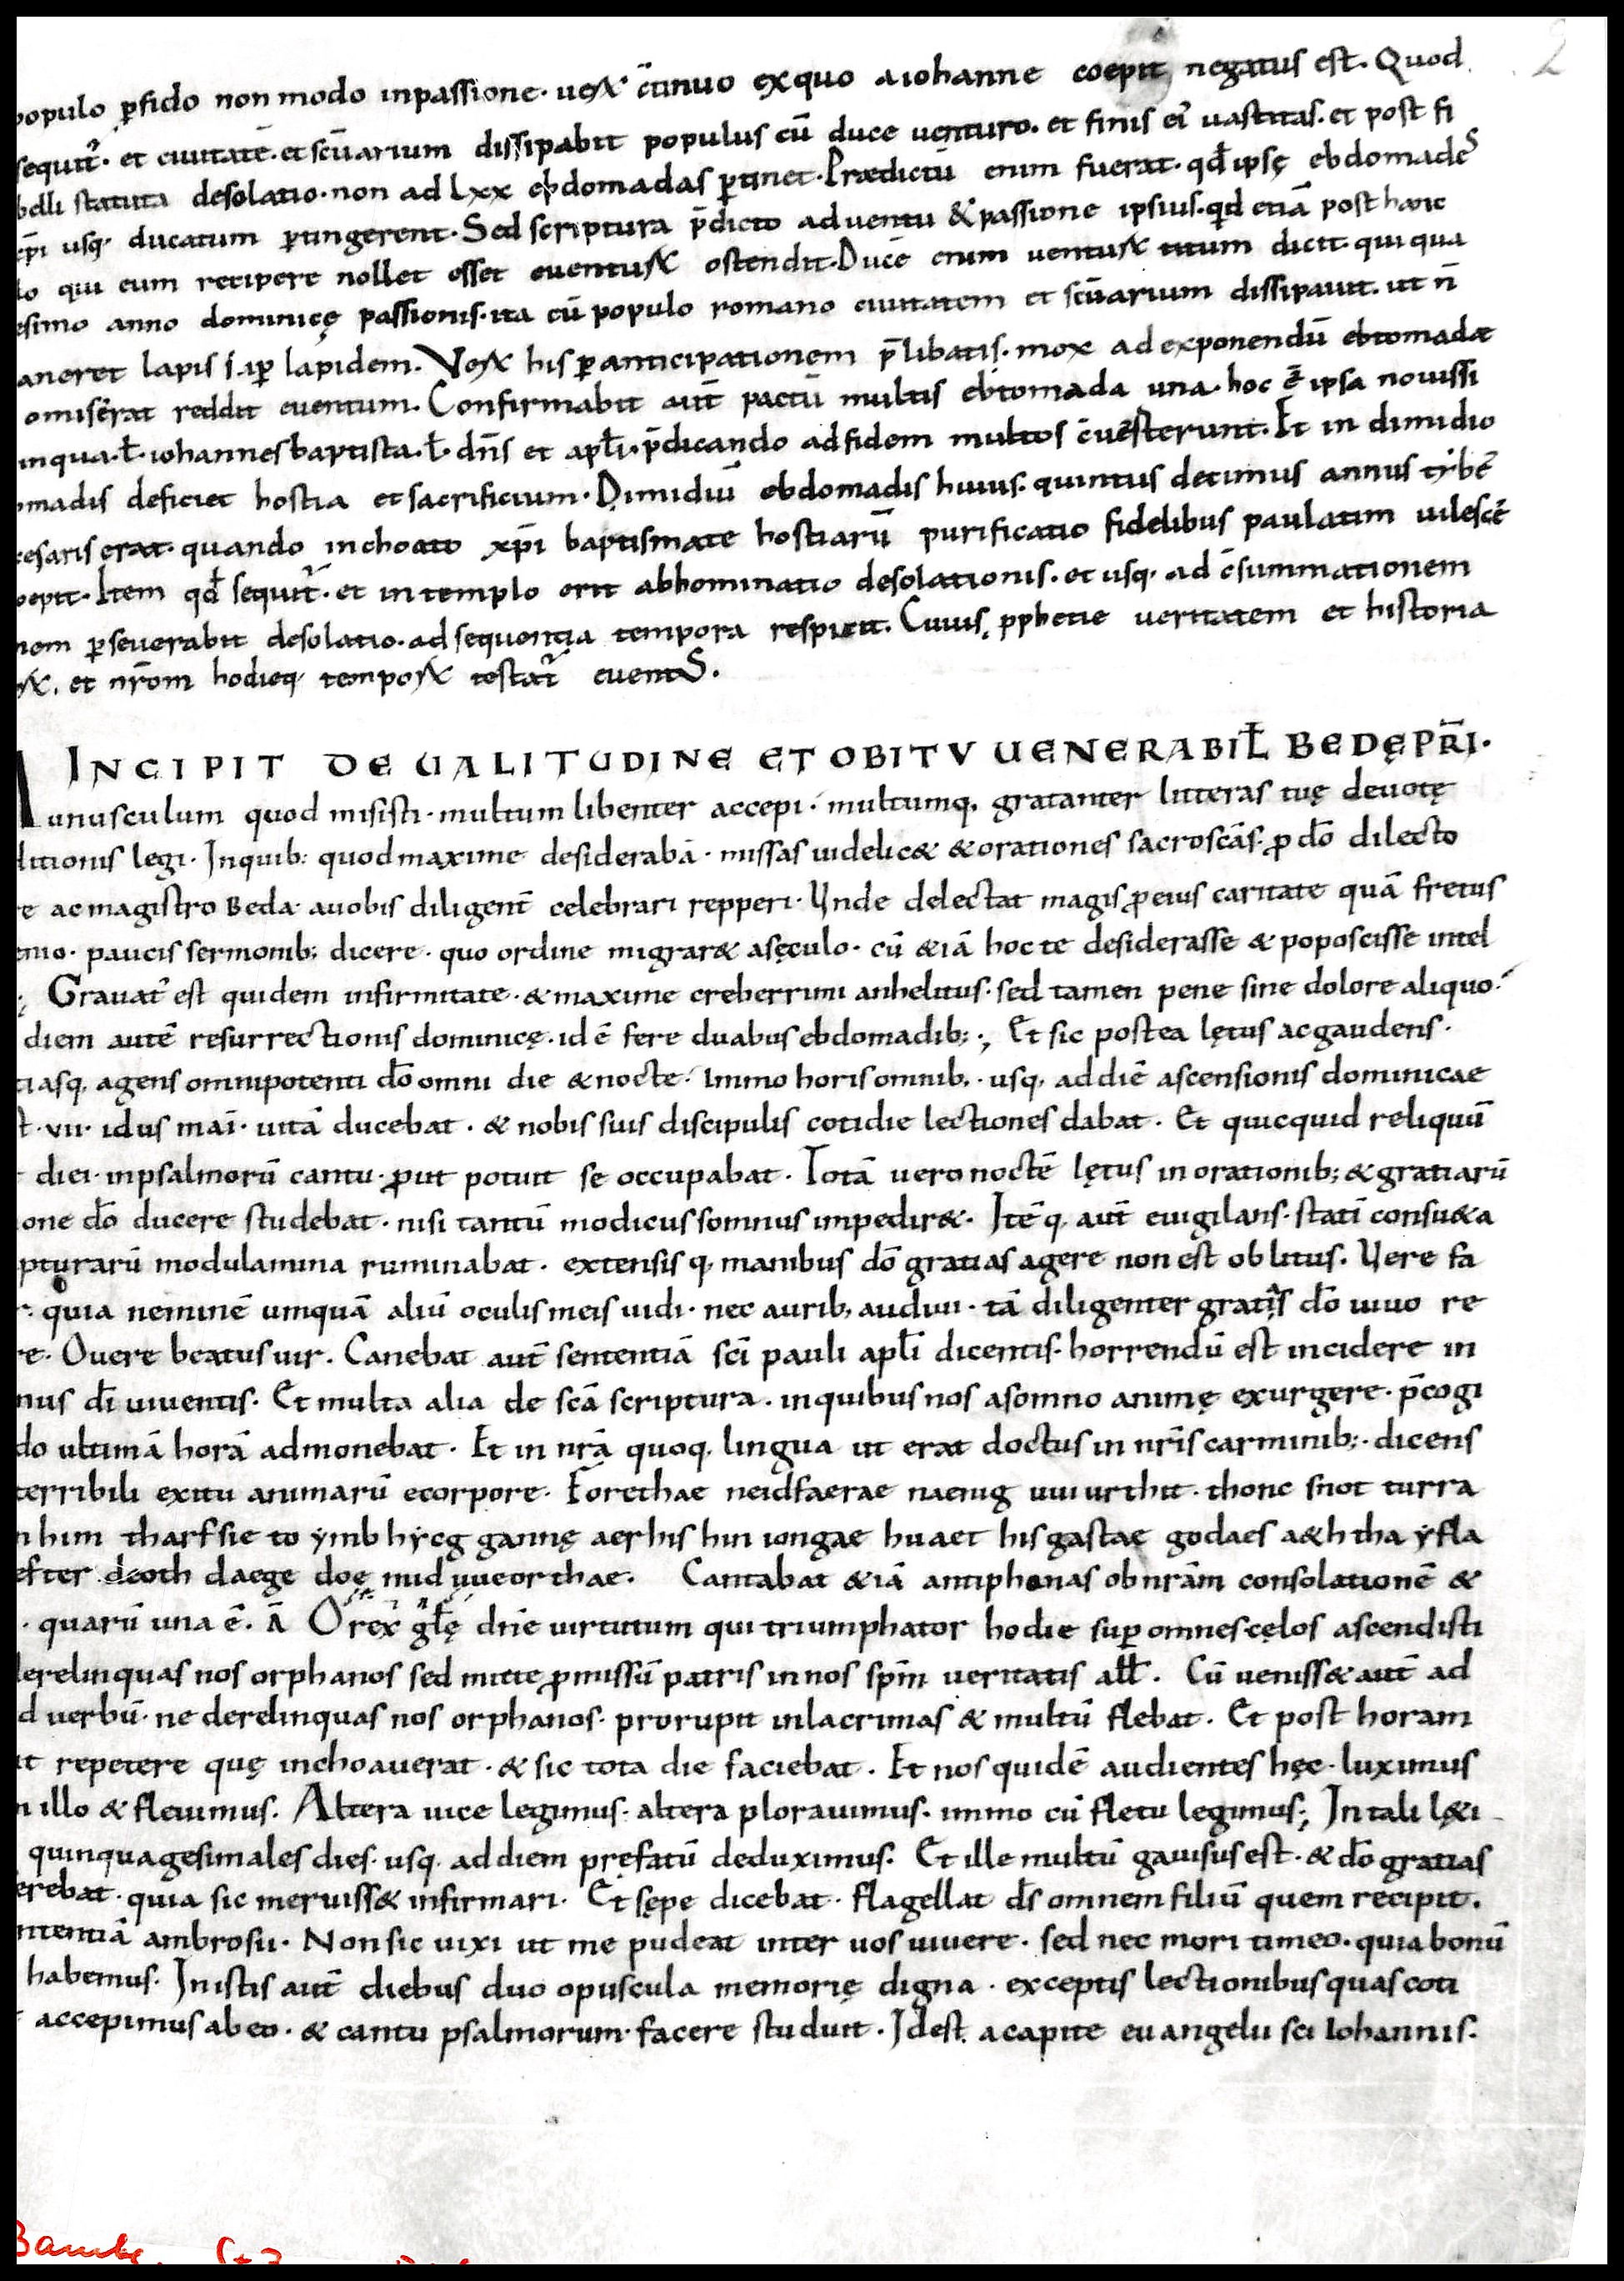 populo ꝑfido non modo inpassione· ueꝝ c̄tinuo exquo aiohanne coepit negatus est. Quod
sequit᷑· et ciuitatē· et scūarium dissipabit populus cū duce uenturo. et finis eī uastitas. et post fi
belli statuta desolatio· non ad Lxx ebdomadas ꝑtinet· Prædictū enim fuerat· qđ ipsę ebdomade᷒
xp̄i usq· ducatum ꝑtingerent· Sed scriptura p̄dicto aduentu & passione ipsius· qd etiā post hanc
lo qui eum recipere nollet esset euentuꝝ ostendit· Ducē enim uentuꝝ titum dicit· qui qua
esimo anno dominicę passionis· ita cū populo romano ciuitatem et scūarium dissipauit. ut n̄
aneret lapis .i. suꝑ lapidem. Veꝝ his ꝑ anticipationem p̄libatis· mox ad exponendū ebtomadæ
omiserat reddit euentum. Confirmabit aut̄ pactū multis ebtomada una· hoc ē ipsa nouissi
inqua· ł· iohannes baptista· ł· dn̄s et apłi· p̄dicando adfidem multos c̄uesterunt. Et in dimidio
omadis deficiet hostia et sacrificium· Dimidiū ebdomadis huius· quintus decimus annus tẏbē
cesaris erat· quando inchoato xp̄i baptismate hostiarū purificatio fidelibus paulatim uilescē
oepit· Item qđ sequit᷑· et in templo erit abhominatio desolationis· et usq· ad c̄summationem
nem ꝑseuerabit desolatio· ad sequentia tempora respicit. Cuius pphetie ueritatem et historia
ꝝ. et nr̄om hodieq· tempoꝝ testat᷑ euentS.
INCIPIT DE UALITUDINE ET OBITV UENERABIŁ BEDĘ PR̄I·
unusculum quod misisti· multum libenter accepi· multumq, gratanter litteras tuę deuotę
litionis legi· Inquib: quod maxime desiderabā· missas uidelic& & orationes sacroscās· ꝓ dō dilecto
e ac magistro Beda· auobis diligent̄ celebrari repperi· Unde delectat magis ꝓ eius caritate quā fretus
enio· paucis sermonib; dicere· quo ordine migrar& asęculo· cū &iā hoc te desiderasse & poposcisse intel
ę Grauat᷒ est quidem infirmitate· & maxime creberrimi anhelitus· sed tamen pene sine dolore aliquo·
diem autē resurrectionis dominicę· id ē fere duabus ebdomadib; ·, Et sic postea lętus ac gaudens·
tiasq, agens omnipotenti dō omni die & nocte· Immo horis omnib,· usq, ad diē ascensionis dominicae
t· vii· idus maī· uitā ducebat· & nobis suis discipulis cotidie lectiones dabat· Et quicquid reliquū
diei· inpsalmorū cantu· ꝓut potuit se occupabat· Totā uero noctē lętus in orationib; & gratiarū
one dō ducere studebat· nisi tantū modicus somnus impedir&· Itē q, aut̄ euigilans· statī consu&a
pturarū modulamina ruminabat· extensis q, manibus dō gratias agere non est oblitus. Vere fa
r· quia neminē umquā aliū oculis meis uidi· nec aurib, audiui· tā diligenter gratis dō uiuo re
re· O uere beatus uir. Canebat aut̄ sententiā scī pauli apłi dicentis· horrendū est incidere in
nus dī uiuentis. Et multa alia de scā scriptura· inquibus nos asomno animę exurgere· p̄cogi
do ultimā horā admonebat· Et in nrā quoq, lingua ut erat doctus in nr̄is carminib;· dicens
terribili exitu animarū ecorpore· Forethae neidfaerae naenig uuiurthit· thonc snot turra
n him tharf sie to ẏmb hẏcg gannę aer his hin iongae huaet his gastae godaes a&htha ẏfla
efter deoth daege doe mid uueorthae. Cantabat &iā antiphonas ob nrām consolationē &
· quarū una ē· Ā O rex głę dn̄e uirtutum qui triumphator hodie suꝑ omnes cęlos ascendisti
derelinquas nos orphanos sed mitte ꝓmissū patris in nos sp̄m ueritatis ałł. Cū uenisss& aut̄ ad
d uerbū· ne derelinquas nos orphanos· prorupit inlacrimas & multū flebat. Et post horam
it repetere quę inchoauerat· & sic tota die faciebat. Et nos quidē audientes hęc· luximus
n illo & fleuimus. Altera uice legimus· altera plorauimus· immo cū fletu legimus; In tali lę&i
quinquagesimales dies· usq, ad diem pręfatū deduximus. Et ille multū gauisus est· & dō gratias
erebat· quia sic meruiss& infirmari· Et sępe dicebat· flagellat ds̄ omnem filiū quem recipit.
ntentiā ambrosii· Non sic uixi ut me pudeat inter uos uiuere· sed nec mori timeo· quia bonū
habemus. In istis aut̄ diebus duo opuscula memorię digna· exceptis lectionibus quas coti
accepimus ab eo· & cantu psalmorum· facere studuit· Id est. a capite euangelii sci Iohannis.